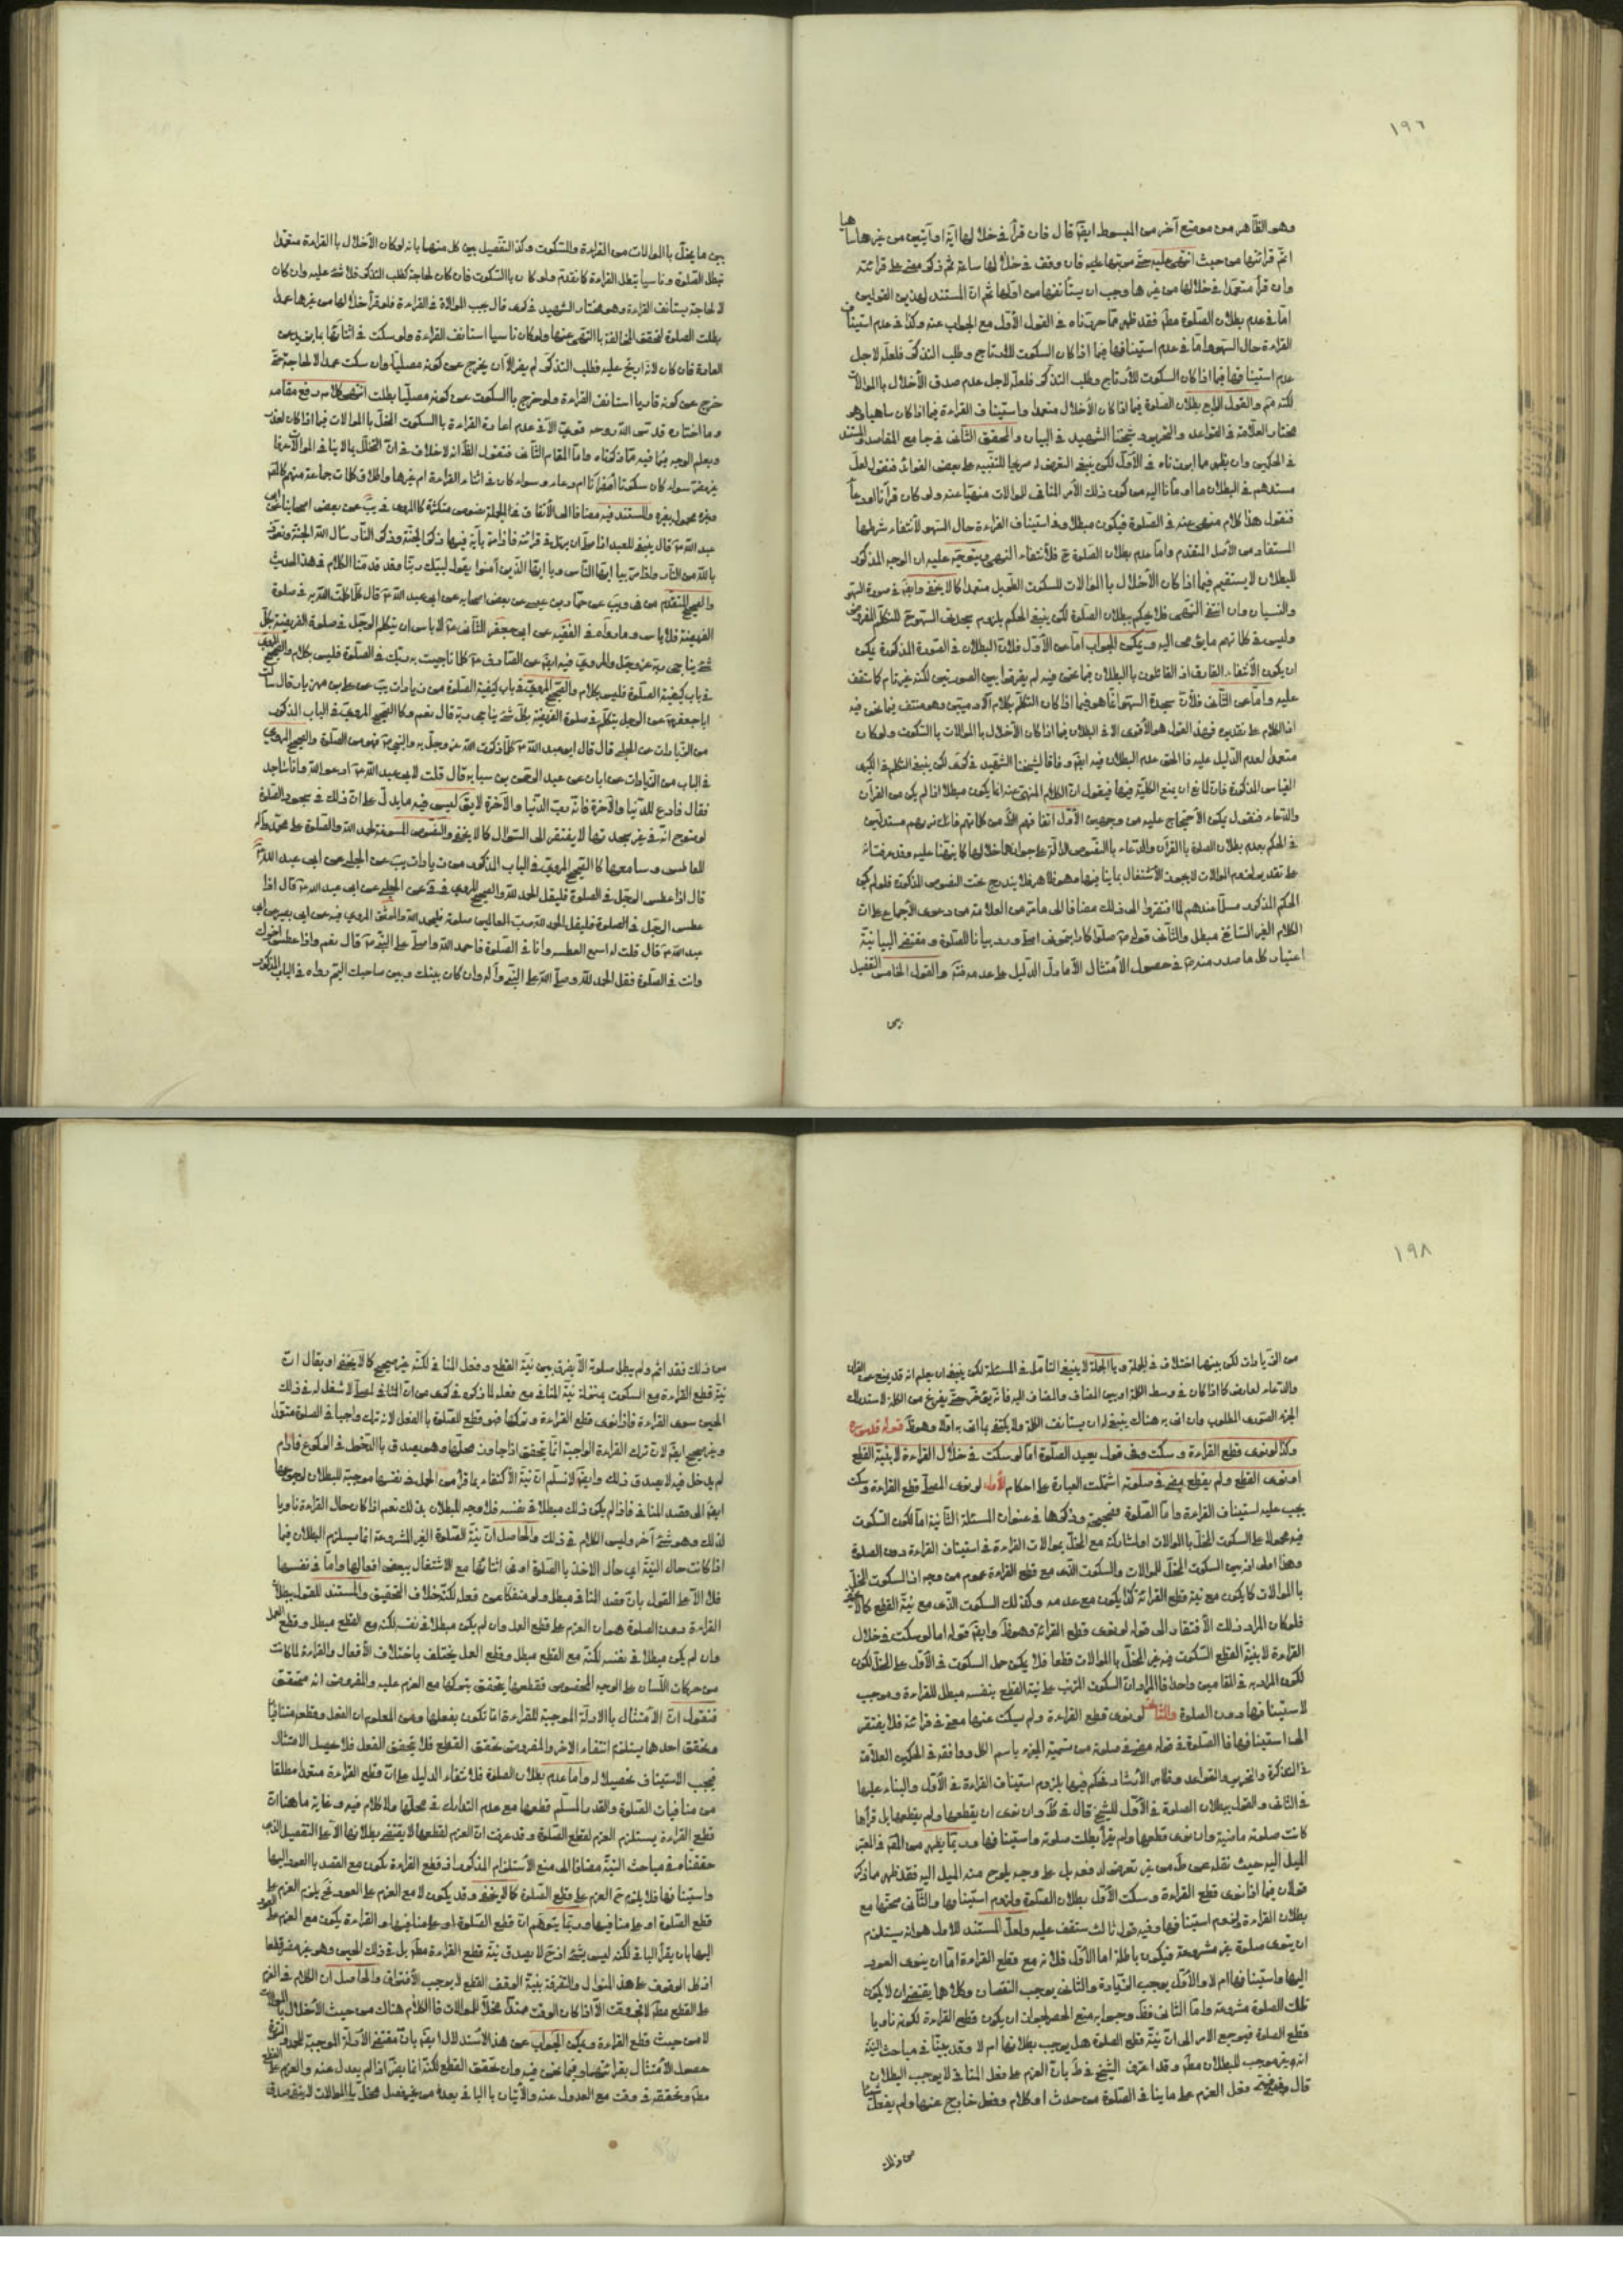 ١٩٦
وهو الظاهر من موضع آخر من المبسوط ايضا قال فان قرأ في خلالها آية او آيتين من غيرها ساهيا
اتم قرائتها من حيث انتهى اليه حتى يرتبها عليه فان وقف في خلالها ساعة ثم ذكر مضى على قرائته
وان قرأ متعمدا في خلالها من غيرها وجب ان يستأنفها من اولها ثم ان المستند لهذين القولين
اما في عدم بطلان الصلوة مطلقا فقد ظهر مما حررناه في القول الأول مع الجواب عنه وكذا في عدم استيناف
القراءة حال السهو واما في عدم استينافها فيما اذا كان السكوت للأرتاج وطلب التذكر فلعله لاجل
عدم استينافها فيما اذا كان السكوت للأرتاج وطلب التذكر فلعله لاجل عدم صدق الأخلال بالموالات
لكنه والقول الرابع بطلان الصلوة فيما اذا كان الأخلال متعمدا واستيناف القراءة فيما اذا كان ساهيا وهو
مختار العلامة في القواعد والتحرير وشيخنا الشهيد في البيان والمحقق الثاني في جامع المقاصد والمستند
في الحكمين وان يظهر ما اوردناه في الأول لكن ينبغي التعرض له صريحا للتنبيه على بعض الفوائد فنقول لعل
مستندهم في البطلان ما اومأنا اليه من كون ذلك الأمر المنافي للموالات منهيا عنه ولو كان قرآنا او دعاء
فنقول هذا كلام منهى عنه في الصلوة فيكون مبطلا وفي استيناف القراءة حال السهو لأنتفاء شرطها
المستفاد من الأصل المتقدم واما عدم بطلان الصلوة ح فلأنتفاء النهى ويتوجه عليه ان الوجه المذكور
للبطلان لا يستقيم فيما اذا كان الأخلال بالموالات للسكوت الطويل متعمدا كما لا يخفى وايضا في صورة السهو
والنسيان وان انتفى النهى فلا يحكم ببطلان الصلوة لكن ينبغي الحكم بلزوم سجدتى السهو ح للتكلم المفروض
وليس في كلامهم ما يؤمى اليه ويمكن الجواب اما عن الأول فلأن البطلان في الصورة المذكورة يمكن
ان يكون لأنتفاء الفارق اذ القائلون بالبطلان فيما نحن فيه لم يفرقوا بين الصورتين لكنه غير تام كما ستقف
عليه واما عن الثاني فلأن سجدة السهو انما هو فيما اذا كان التكلم بكلام الآدميين وهو منتف فيما نحن فيه
اذ الكلام على تقديره فهذا القول هو الأقوى الا في البطلان فيما اذا كان الأخلال بالموالات بالسكوت ولو كان
متعمدا لعدم الدليل عليه فالحق عدم البطلان فيه ايضا وفاقا لشيخنا الشهيد في كرى لكن ينبغي التكلم في الكبرى
القياس المذكورة فان لمانع ان يمنع الكلية فيها فيقول ان الكلام المنهى عنه انما يكون مبطلا اذا لم يكن من القرآن
والدعاء فنقول يمكن الأحتجاج عليه من وجهين الأول اتفاقهم
في الحكم بعدم بطلان الصلوة بالقرآن والدعاء بالنصوص الدالة على جوازهما خلالها كما نبهنا عليه وقد عرفت انه
على تقدير لزوم الموالات لا يجوز الأشتغال بما ينافيها وهو ظاهر فلا يندرج تحت النصوص المذكورة فلو لم يكن
الحكم المذكور مسلما عندهم لما افتقروا الى ذلك مضافا الى ما مر من العلامة من دعوى الأجماع على ان
الكلام الغير السائغ مبطل والثاني قوله ع صلوا كما رأيتموني اصلي ورد بيانا للصلوة ومقتضى البيانية
اعتبار كل ما صدر منه ع في حصول الأمتثال الا ما دل الدليل على عدمه فتم والقول الخامس التفصيل
بين
بين ما يخل بالموالات من القراءة والسكوت وكذا التفصيل بين كل منهما بانه لو كان الأخلال بالقراءة متعمدا
تبطل الصلوة وناسيا تبطل القراءة كما تقدم ولو كان بالسكوت فان كان لحاجة كطلب التذكر فلا شئ عليه وان كان
لا لحاجة يستأنف القراءة وهو مختار الشهيد في كرى قال يجب الموالاة في القراءة فلو قرأ خلالها من غيرها عمدا
بطلت الصلوة لتحقق المخالفة بالنهى عنها ولو كان ناسيا استانف القراءة ولو سكت في اثنائها بما يزيد عن
العادة فان كان لانه ارتج عليه فطلب التذكر لم يضر الا ان يخرج عن كونه مصليا وان سكت عمدا لا لحاجة حتى
خرج عن كونه قاريا استانف القراءة ولو خرج بالسكوت عن كونه مصليا بطلت انتهى كلامه رفع مقامه
وما اختاره قدس الله روحه قوى الا في عدم اعادة القراءة بالسكوت المخل بالموالات فيما اذا كان لعذر
ويعلم الوجه فيما فيه مما ذكرناه واما المقام الثاني فنقول الظاهر انه لا خلاف في ان التخلل بما لا ينافي الموالات عرفا
غير مضر سواء كان سكوتا ام قرآنا ام دعاء وسواء كان في اثناء القراءة ام غيرها واطلاق كلمات جماعة منهم كالقم
وغيره محمول بغيره والمستند فيه مضافا الى الأتفاق في الجملة نصوص متكثرة كالمروى في يب عن بعض اصحابنا عن ابى
عبد الله ع قال ينبغي للعبد اذا صلى ان يرتل في قرائته فاذا مر بآية فيها ذكر الجنة وذكر النار سأل الله الجنة وتعوذ
بالله من النار واذا مر بيا ايها الناس ويا ايها الذين آمنوا يقول لبيك ربنا وقد قدمنا الكلام في هذا الحديث
والصحيح المتقدم عن حماد بن عيسى عن بعض اصحابه عن ابى عبد الله ع قال كلما كلمت الله به في صلوة
الفريضة فلا باس وما رواه في الفقيه عن ابى جعفر الثاني ع لا باس ان يتكلم الرجل في صلوة الفريضة بكل
شئ يناجى ربه عز وجل والمروى فيه ايضا عن الصادق ع كلما ناجيت به ربك في الصلوة فليس بكلام والصحيح المروى
في باب كيفية الصلوة من زيادات يب عن على بن مهزيار قال سألت
ابا جعفر ع عن الرجل يتكلم في صلوة الفريضة بكل شئ يناجى ربه قال نعم وكالصحيح المروى في الباب المذكور
من الزيادات عن الحلبى قال قال ابو عبد الله ع كلما ذكرت الله عز وجل به والنبي ع فهو من الصلوة والصحيح المروى
في الباب من الزيادات عن ابان عن عبد الرحمن بن سيابه قال قلت لابى عبد الله ع ادعو الله وانا ساجد
فقال فادع للدنيا والآخرة فانه رب الدنيا والآخرة لا يقال ليس فيه ما يدل على ان ذلك في سجود الصلوة
لوضوح انه في غير سجدتها لا يفتقر الى السئوال كما لا يخفى والنصوص المسوغة لحمد الله والصلوة على محمد وآله
للعاطس وسامعها كالصحيح المروى في الباب المذكور من زيادات يب عن الحلبى عن ابى عبد الله ع
قال اذا عطس الرجل في الصلوة فليقل الحمد لله والصحيح المروى في عن الحلبى عن ابى عبد الله ع قال اذا
عطس الرجل في الصلوة فليقل الحمد لله رب العالمين فليحمد الله والموثق المروى فيه عن ابى بصير عن ابى
عبد الله ع قال قلت له اسمع العطسة وانا في الصلوة فاحمد الله واصلى على النبي ع قال نعم واذا عطس اخوك
وانت في الصلوة فقل الحمد لله وصلى الله على النبي وآله وان كان بينك وبين صاحبك اليم رواه في الباب المذكور
١٩٨
من الزيادات لكن بينهما اختلاف في الجملة وبالجملة لا ينبغي التامل في المسئلة لكن ينبغي ان يعلم انه قد يمنع عن القرآن
والدعاء لعارض كما اذا كان في وسط الكلمة او بين المضاف والمضاف اليه فانه يتوقف حتى يفرغ من الكلمة لاستدراك
الجزء الصورى المطلوب وان اتى به هناك ينبغي له ان يستانف الكلمة ولا يكتفى بما اتى به اولا وهو ظ قوله قدس سره
وكذا لو نوى قطع القراءة وسكت وفي قول يعيد الصلوة اما لو سكت في خلال القراءة لا بنية القطع
او نوى القطع ولم يقطع مضى في صلوته اشتملت العبارة على احكام الأول لو نوى المصلى قطع القراءة وسكت
يجب عليه استيناف القراءة واما الصلوة فصحيحة وذكرها في عنوان المسئلة الثانية اما لكون السكوت
فيه محمولا على السكوت المخل بالموالات او لمشاركته مع المخل بموالات القراءة في استيناف القراءة دون الصلوة
وهذا اولى اذ بين السكوت المخل للموالات والسكوت الذى مع قطع القراءة عموم من وجه اذ السكوت المخل
بالموالات كما يكون مع نية قطع القرائة كذا يكون مع عدمه وكذلك السكوت الذى مع نية القطع كما لا يخفى
فلو كان المراد ذلك الأفتقار الى قوله لو نوى قطع القرائة وهو ظ وايضا قوله اما لو سكت في خلال
القراءة لا بنية القطع السكوت فيه غير المخل بالموالات قطعا فلا يمكن حمل السكوت في الأول على المخل لكون
لكون المراد به في المقامين واحدا فالمراد ان السكوت المرتب على نية القطع بنفسه مبطل للقراءة وموجب
لاستينافها دون الصلوة والثاني لو نوى قطع القراءة ولم يسكت عنها مضى في قرائته فلا يفتقر
الى استينافها فالصلوة في قوله مضى في صلوته من تسمية الجزء باسم الكل ووافقه في الحكمين العلامة
في التذكرة والتحرير والقواعد وفاقا الأرشاد فحكم فيها بلزوم استيناف القراءة في الأول والبناء عليها
في الثاني والقول ببطلان الصلوة في الأول للشيخ قال في ط وان نوى ان يقطعها ولم يقطعها بل قرأها
كانت صلوته ماضية وان نوى قطعها ولم يقرأ بطلت صلوته واستينافها وربما يظهر من المص في المعتبر
الميل اليه حيث نقله عن ط من غير تعرض لرده بل على وجه يلوح منه الميل اليه فقد ظهر مما ذكر
قولان فيما اذا نوى قطع القراءة وسكت الأول بطلان الصلوة ولزوم استينافها والثاني صحتها مع
بطلان القراءة ولزوم استينافها وفيه قول ثالث ستقف عليه ولعل المستند للاول هو انه يستلزم
ان ينوى صلوة غير مشروعة فيكون باطلة اما الأول فلانه مع قطع القراءة اما ان ينوى العود
اليها واستينافها ام لا والأول يوجب الزيادة والثاني يوجب النقصان وكلاهما يقتضى ان لا يكون
تلك الصلوة مشروعة واما الثاني فظ وجوابه منع الحصر لجواز ان يكون قطع القراءة لكونه ناويا
قطع الصلوة فيرجع الامر الى ان نية قطع الصلوة هل يوجب بطلانها ام لا وقد بينا في مباحث النية
انه غير موجب للبطلان مطلقا وقد اعترف الشيخ في ط بان العزم على فعل المنافي لا يوجب البطلان
قال فعل العزم على ما ينافي الصلوة من حدث او كلام وفعل خارج عنها ولم يفعل شيئا
من ذلك
من ذلك فقد اثم ولم يبطل صلوته الا يفرق بين نية القطع وفعل المنافي لكنه غير صحيح كما لا يخفى او يقال ان
نية قطع القراءة مع السكوت بمنزلة نية المنافي مع فعله لما ذكره في كرى من ان المنافي لمصلى لا شغل له في ذلك
الحين سوى القراءة فاذا نوى قطع القراءة وتركها فهو قطع للصلوة بالفعل لانه ترك واجبا في الصلوة متعمدا
وغير صحيح ايضا لان ترك القراءة الواجبة انما يتحقق اذا جاوزت محلها وهو يصدق بالدخول في الركوع فما دام
لم يدخل فيه لا يصدق ذلك وايضا لا نسلم ان نية الأكتفاء بما قرأ من الحمل في نفسها موجبة للبطلان لرجوعها
ايضا الى قصد المنافي فاذا لم يكن ذلك مبطلا في نفسه فلا وجه للبطلان بذلك نعم اذا كان حال القراءة ناويا
لذلك وهو شئ آخر وليس الكلام في ذلك والحاصل ان نية الصلوة الغير المشروعة انما يستلزم البطلان فيما
اذا كانت حال النية اى حال الاخذ بالصلوة او في اثنائها مع الاشتغال ببعض افعالها واما في نفسها
فلا الا على القول بان قصد المنافي مبطل ولو منفكا عن فعل لكنه خلاف التحقيق والمستند للقول ببطلان
القراءة دون الصلوة هو ان العزم على قطع العمل وان لم يكن مبطلا في نفسه لكنه مع القطع مبطل وقطع العمل
وان لم يكن مبطلا في نفسه لكنه مع القطع مبطل وقطع العمل يختلف باختلاف الأفعال والقراءة لما كانت
من حركات اللسان على الوجه المخصوص فقطعها يتحقق بتركها مع العزم عليه والمفروض انه متحقق
فنقول ان الأمتثال بالادلة الموجبة للقراءة انما تكون بفعلها ومن المعلوم ان الفعل وقطعه متنافيان
وتحقق احدهما يستلزم انتفاء الآخر والمفروض تحقق القطع فلا يتحقق الفعل فلا يحصل الأمتثال
فيجب الاستيناف تحصيلا له واما عدم بطلان الصلوة فلانتفاء الدليل على ان قطع القراءة متعمدا مطلقا
من منافيات الصلوة والقدر المسلم قطعها مع عدم التدارك في محلها ولا كلام فيه وغاية ما هنا ان
قطع القراءة يستلزم العزم لقطع الصلوة وقد عرفت ان العزم لقطعها لا يقتضى بطلانها الا على التفصيل الذى
حققناه في مباحث النية مضافا الى منع الأستلزام المذكور اذ قطع القراءة يكون مع القصد بالعود اليها
واستينافها فلا يلزم ح العزم على قطع الصلوة كما لا يخفى وقد يكون لا مع العزم على العود فح يلزم العزم على
قطع الصلوة او على منافيها وربما يتوهم ان قطع الصلوة او على منافيها والقراءة يكون مع العزم على العود
اليها بان يقرأ الباقي لكنه ليس بشئ اذ ح لا يصدق نية قطع القراءة مطلقا بل في ذلك الحين وهو غير مضر قطعا
اذ كل الوقوف على هذا المنوال والتفرقة بنية الوقف القطع لا يوجب الأفتراق والحاصل ان الكلام في العزم
على القطع مطلقا لا في وقت الا اذا كان الوقت ممتدا مخلا للموالات فالكلام هناك من حيث الأخلال بالموالات
لا من حيث قطع القراءة ويمكن الجواب عن هذا الأستدلال ايضا بان مقتضى الأدلة الموجبة للحمد والسورة
حصول الأمتثال بقرائتهما وفيما نحن فيه وان تحقق القطع لكنه انما يضر اذا لم يعدل عنه والعزم على القطع
مطلقا وتحققه في وقت مع العدول عنه والأتيان بالباقي بعده من غير فصل مخل بالموالات لا ينفى صدق